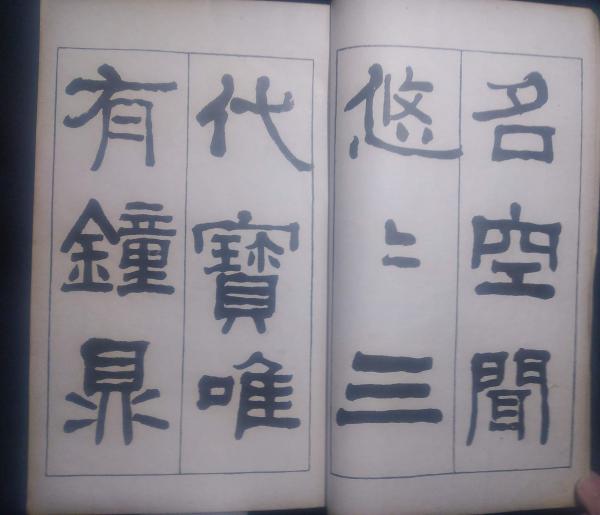 名空聞
悠〻三
代寶唯
有鐘鼎